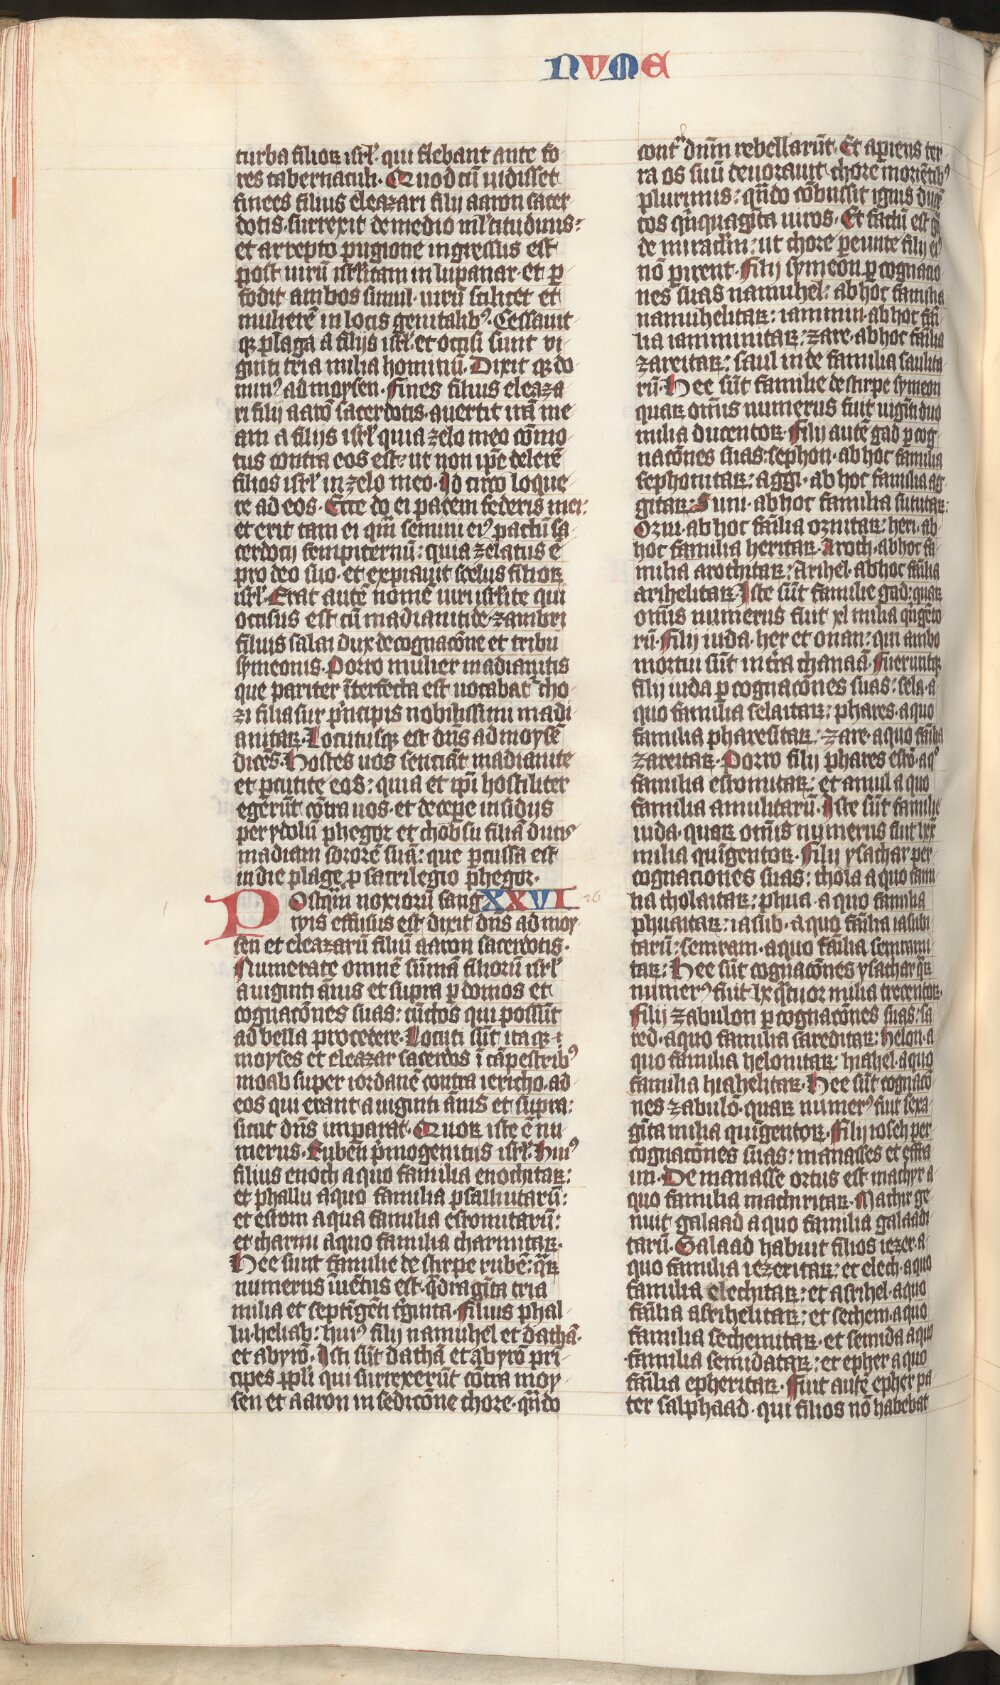 NVME
turba filioꝝ isrl̕· qui flebant ante fo
res tabernaculi· Quod cū uidisset
finees filius eleazari filij aaron sacer
dotis· surrexit de medio ml̕titudinis:
et arrepto pugione ingressus est
post uirū isrl̕itam in lupanar· et ꝑ
fodit ambos simul· uirū scilicet et
mulierē in locis genitalibꝰ· Cessauit
qꝫ plaga a filijs isrl̕· et occisi sunt vi
ginti tria milia hominū· Dixit qꝫ do
minꝰ ad moysen· fines filius eleaza
ri filij aarō sacerdotis· auertit irā me
am a filijs isrl̕ quia zelo meo cōmo
tus contra eos est: ut non ip̄e delerē
filios isrl̕ in zelo meo· Idcirco loque
re ad eos· Ecce do ei pacem federis mei:
et erit tam ei qm̄ semini eiꝰ pactū sa
cerdocij sempiternū: quia zelatus ē
pro deo suo· et expiauit scelus filioꝝ
isrl̕· Erat autē nomē uiri isrl̕ite qui
occisus est cū madianitide· zambri
filius salai dux de cognacōne et tribu
symeonis· Porro mulier madianitis
que pariter īterfecta est uocabat᷑ cho
zi filia sur prīcipis nobilissimi madi
anitaꝝ· Locutusqꝫ est dn̄s ad moysē
dicēs· Hostes uos senciāt madianite
et ꝑcutite eos: quia et ip̄i hostiliter
egerūt cōtra uos· et decepe insidijs
per ydolū phegor et chobi su filiā ducis
madiam sororē suā: que ꝑcussa est
in die plage ꝑ sacrilegio phegor·
Postqm̄ noxiorū sang XXVI 26
wis effusus est· dixit dn̄s ad moy
sen et eleazarū filiū aaron sacerdotis·
Numerate omnē sūmā filiorū isrl̕
a uiginti ānis et supra ꝑ domos et
cognacōnes suas: cūctos qui possūt
ad bella procedere· Locuti sūt itaqꝫ
moyses et eleazar sacerdos ī cāpestribꝰ
moab super iordanē contra iericho· ad
eos qui erant a uiginti ānis et supra:
sicut dn̄s imparat· Quoꝝ iste ē nu
merus· Rubēn pͥmogenitus isrl̕· Huiꝰ
filius enoch a quo familia enochitaꝝ:
et phallu a quo familia psalluitarū:
et esrom a qua familia esromitarū:
et charmi a quo familia charmitaꝝ·
Hee sunt familie de stirpe rubē: qͣꝝ
numerus iuētus est· qͣdragīta tria
milia et septīgēti tͥginta· Filius phal
lu· heliab: huiꝰ filij namuhel et dathā·
et abyrō· Isti sūt dathā et abyrō pri
cipes ppl̕i qui surrexerūt cōtra moy
sen et aaron in sedicōne chore· qn̄do
contͣ dn̄m rebellarūt· Et apiens ter
ra os suū deuorauit chore moriētibꝰ
plurimis: qn̄do cōbussit ignis ducē
tos qͥnquagīta uiros· Et factū est gͣ
de miraclm̄: ut chore pereunte filij eiꝰ
nō ꝑirent· Filij symeon ꝑ cognatio
nes suas namuhel: ab hoc familia
namuhelitaꝝ: iammin· ab hoc fāi
lia iamminitaꝝ: zare· ab hoc fāilia
zareitaꝝ: saul inde familia saulita
rū· Hee sūt familie de stirpe symeon
quaꝝ om̄is numerus fuit uigīti duo
milia ducentoꝝ· Filij autē gad ꝑ cog
nacōnes suas: sephon· ab hoc familia
sephonitaꝝ: aggi· ab hoc familia ag
gitaꝝ: Suni· ab hoc familia sunitaꝝ:
Ozni· ab hoc fāilia oznitaꝝ: heri· ab
hoc familia heritaꝝ· Aroth· ab hoc fa
milia arothitaꝝ: Arihel· ab hoc fāilia
arihelitaꝝ· Iste sūt familie gad: quaꝝ
om̄is numerus fuit xl milia qͥngēto
rū· Filij iuda· her et onan: qui ambo
mortui sūt in tr̄a chanaā· Fueruntqꝫ
filij iuda ꝑ cognacōnes suas: sela· a
quo familia selaitaꝝ: phares· a quo
familia pharesitaꝝ: zare· a quo fāilia
zareitaꝝ· Porro filij phares esrō· a qͦ
familia esromitaꝝ: et amul a quo
familia amulitarū· Iste sūt familie
iuda· quaꝝ om̄is numerus fuit lxx
milia quīgentoꝝ· Filij ysachar per
cognaciones suas: thola a quo fami
lia tholaitaꝝ: phua· a quo familia
phuaitaꝝ: iasub· a quo fāilia iasubi
tarū: semram· a quo fāilia semrami
taꝝ: Hee sūt cognacōnes ysachar qͣꝝ
numerꝰ fuit lx qͣtuor milia trecentoꝝ·
Filij zabulon ꝑ cognacōnes suas: sa
red· a quo familia sareditaꝝ: helon· a
quo familia helonitaꝝ: hiahel· a quo
familia hiahelitaꝝ· Hee sūt cognacō
nes zabulō· quaꝝ numerꝰ fuit sexa
gīta milia quīgentoꝝ· Filij ioseh per
cognacōnes suas: manasses et effra
im· De manasse ortus est machyr a
quo familia machiritaꝝ· Machir ge
nuit galaad a quo familia galaadi
tarū· Galaad habuit filios iezer· a
quo familia iezeritaꝝ: et elech· a quo
familia elechitaꝝ: et asrihel· a quo
fāilia asrihelitaꝝ: et sechem· a quo
familia sechemitaꝝ· et semida a quo
familia semidataꝝ: et epher a quo
fāilia epheritaꝝ· Fuit autē epher pa
ter salphaad· qui filios nō habebat